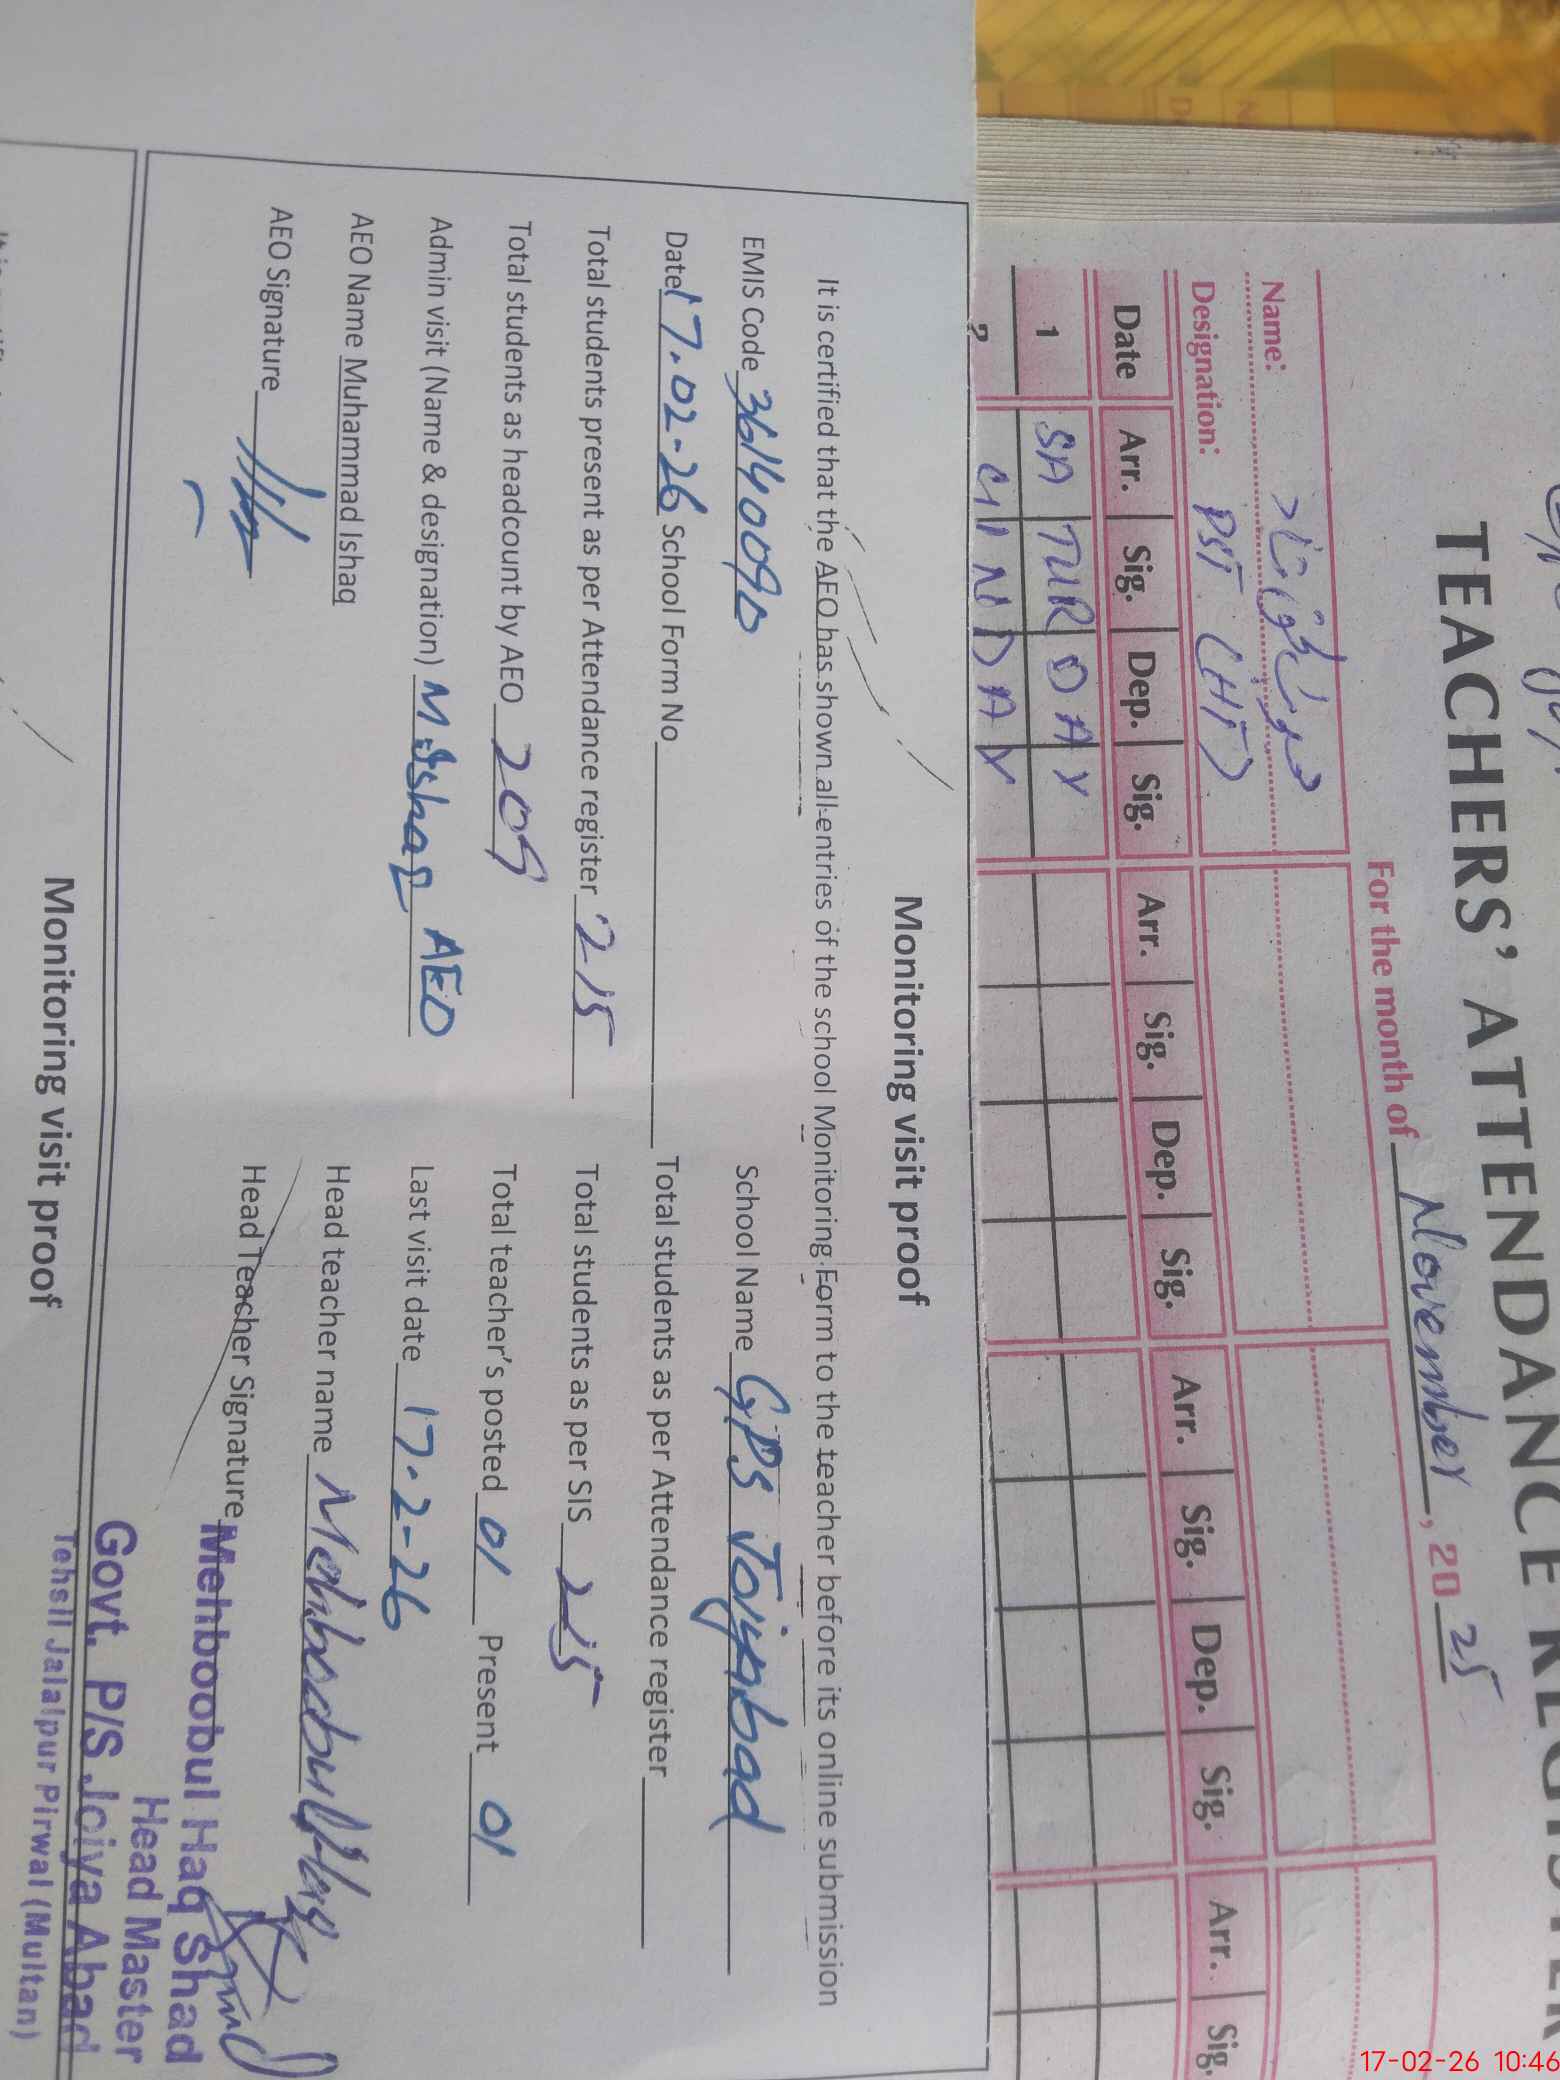 TEACHERS' ATTENDANCE REGISTER
For the month of November, 2025
Name:
Designation: PST (HT)
Date Arr. Sig. Dep. Sig. Arr. Sig. Dep. Sig. Arr. Sig. Dep. Sig. Arr. Sig.
1 SATURDAY
2 SUNDAY
Monitoring visit proof
It is certified that the AEO has shown all entries of the school Monitoring Form to the teacher before its online submission
EMIS Code 36140090 School Name GPS Joiyabad
Date 17.02-26 School Form No Total students as per Attendance register
Total students present as per Attendance register 215 Total students as per SIS 215
Total students as headcount by AEO 209 Total teacher's posted 01 Present 01
Admin visit (Name & designation) M. Ishaq AEO Last visit date 17-2-26
AEO Name Muhammad Ishaq Head teacher name Mehboobul Haq
AEO Signature Head Teacher Signature
Mehboobul Haq Shad
Head Master
Govt. P/S Joiya Abad
Tehsil Jalalpur Pirwal (Multan)
Monitoring visit proof
17-02-26 10:46